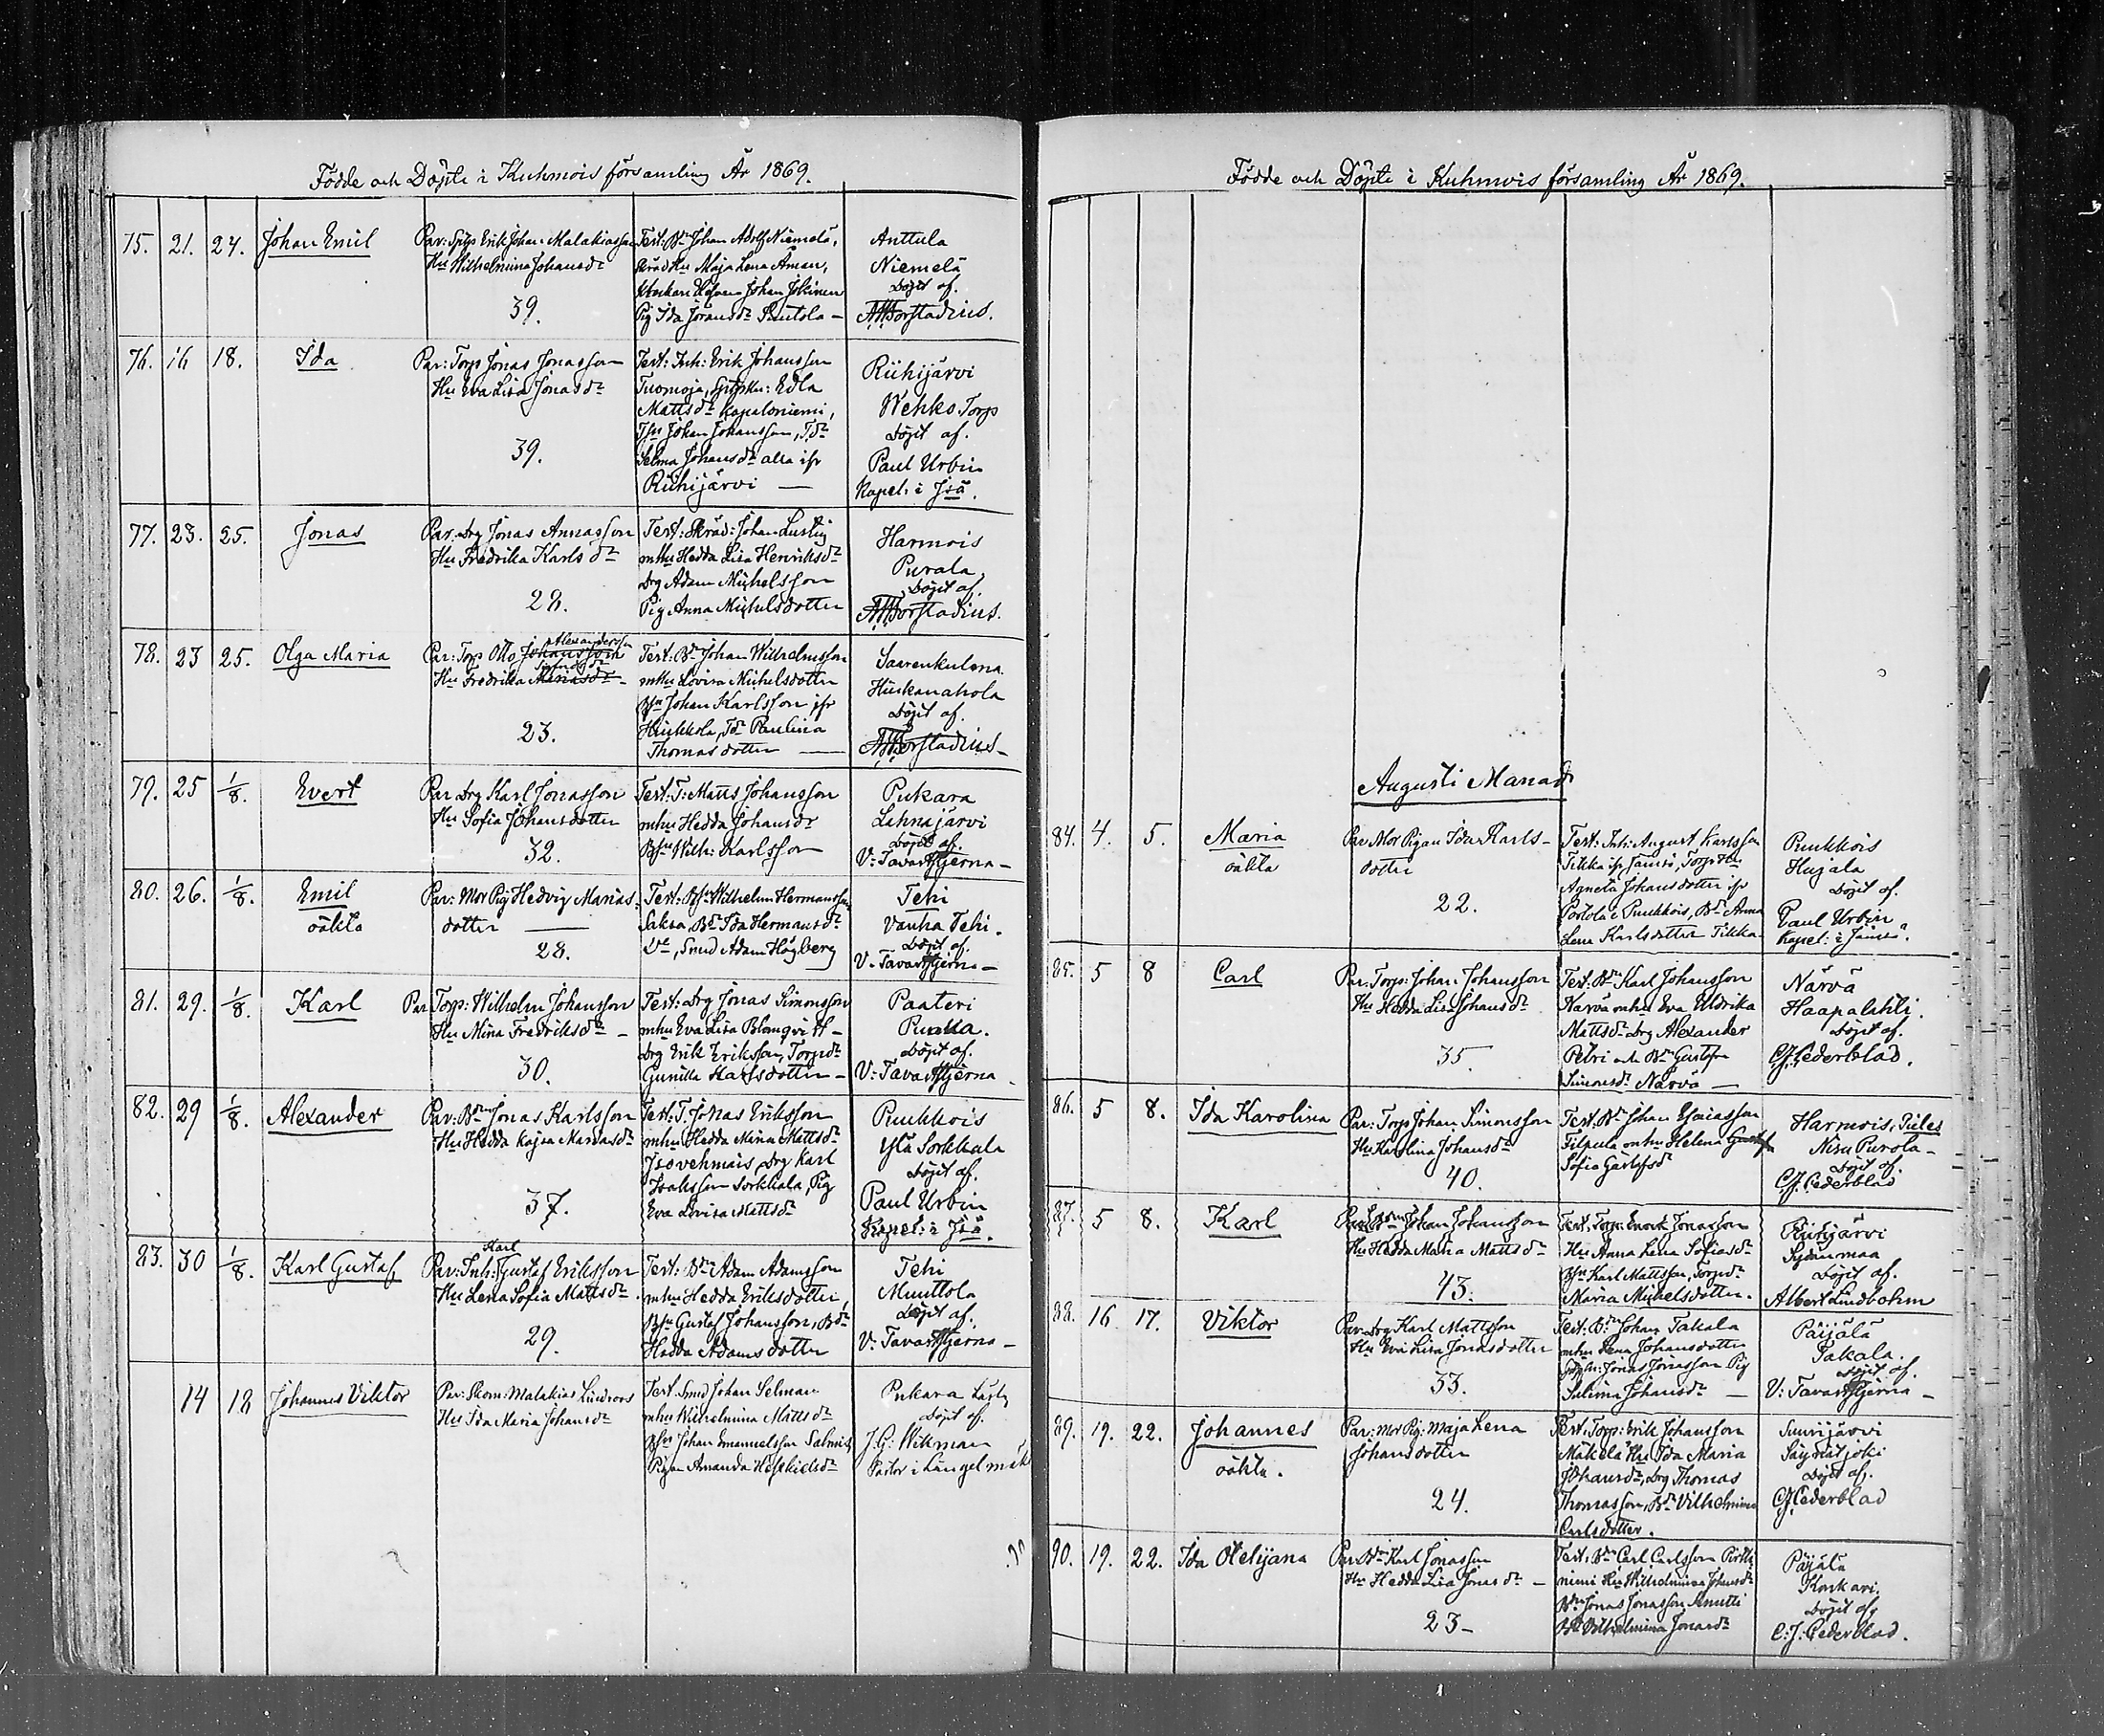 Födde och Döpte i Kuhmois församling År 1869.
75. 21. 24. Johan Emil
Par: Sytp Erik Johan Malakiasson
Hu Wilhelmina Johansdr
39.
Test: Bdn Johan Adolf Niemelä,
Skräd Hu Maja Lena Åman,
Johan Jokinen
Pig Ida Göransdr
Anttula
Niemelä
Döpt af.
Forstadius.
76. 16 18. Ida
Par: Torp Jonas Jonasson
Hu Eva Lisa Jonasdr
39.
Test: Inh: Erik Johansson
Tuomoja, Edla
Mattsdr Kapaloniemi,
Johan Johansson, Tdr
Selma Johansdr alla ifr
Riihijärvi —
Riihijärvi
Wehks Torp
Döpt af.
Paul Urbin
Kapel: i Jsä.
77. 23. 25. Jonas
Par. Drg Jonas Annasson
Hu Fredrika Karlsdr
28.
Test: Skräd: Johan Lustig
mhu Hedda Lisa Henriksdr
Drg Adam Michelsson
Pig Anna Michelsdotter
Harmois
Purala,
Döpt af.
Forstadius.
78. 23 25. Olga Maria
Alexandersson
Par: Torp Otto Johansson
Hu Fredrika
23.
Test: Bdn Johan Wilhelmsson
mhu Lovisa Michelsdotter
Johan Karlsson ifr
Hiukkola, Tdr Paulina
Thomasdotter —
Saarenkulma
Hiukanahola
Döpt af.
Forstadius —
79. 25 1/8. Evert
Par Drg Karl Jonasson
Hu Sofia Johansdotter
32.
Test: T: Matts Johansson
mhu Hedda Johansdr
Bsn Wilh: Karlsson
Pukara
Lahnajärvi
Döpt af.
V: Tavaststjerna —
80. 26. 1/8. Emil
oäkta
Par: Mor Pig Hedvig Marias-
dotter —
28.
Test: Bsn Wilhelm Hermansson
Saksa, Bdr Ida Hermansdr
Smed Adam Högberg
Tehi
Vanha Tehi.
Döpt af.
V: Tavaststjerna —
81. 29. 1/8. Karl
Par Torp: Wilhelm Johansson
Hu Mina Fredriksdr —
30.
Test: Drg Jonas Simonsson
mhu Eva Lisa Blomqvist —
Drg Erik Eriksson, Torpdr
Gunilla Karlsdotter —
Paateri
Döpt af.
V: Tavaststjerna
82. 29 1/8. Alexander
Par: Bdn Jonas Karlsson
Hu Hedda Kajsa Mariasdr
37.
Test: T. Jonas Eriksson
mhu Hedda Mina Mattsdr
Isovehmais, Drg Karl
Isaksson Sorkkala, Pig
Eva Lovisa Mattsdr
Puukkois
Ylä Sorkkala
Döpt af.
Paul Urbin
Kapel: i Jsä.
83. 30 1/8. Karl Gustaf
Karl
Par: Inh: Gustaf Eriksson
Hu Lena Sofia Mattsdr.
29.
Test: Bdn Adam Adamsson
mhu Hedda Eriksdotter,
Bsn Gustaf Johansson, Bdr
Hedda Adamsdotter
Tehi
Muuttola
Döpt af.
V: Tavaststjerna —
14 18 Johannes Viktor
Par: Skom: Malakias Lindroos
Hu Ida Maria Johansdr
Test. Smed Johan Selman
mhu Wilhelmina Mattsdr
Bsn Johan Emanuelsson Salmis
Pigan Amanda
Pukara
Döpt af.
J. G: Wikman
Pastor i Längelmäki
Födde och Döpte i Kuhmois församling År 1869.
Augusti Manad
84. 4. 5. Maria
oäkta
Par Mor Pigan Ida Karls-
dotter
22.
Test: Inh: August Karlsson
Tikka ifr Jämsä, Torp Hu
Agneta Johansdotter ifr
i Puukkois, Bdr Anna
Lena Karlsdotter Tikka
Puukkois
Hujala
Döpt af.
Paul Urbin
Kapel: i Jämsä.
85. 5 8 Carl
Par: Torp: Johan Johansson
Hu Hedda Lisa Johansdr
35
Test: Bdn Karl Johansson
Narvä mhu Eva Uldrika
Mattsdr Drg Alexander
Petri och Bdn Gustafva
Simonsdr Närvä —
Närvä
Haapalahti.
Döpt af.
C. J. Cederblad.
86. 5 8. Ida Karolina
Par: Torp Johan Simonsson
Hu Karolina Johansdr
40.
Test: Bdn Johan Esaiasson
Filpula mhu Helena
Sofia Gustafsdr
Harmois,
Nisu Purola —
Döpt af.
C. J. Cederblad
87. 5 8. Karl
Par Johan Johansson
Hu Hedda Maria Mattsdr
43.
Test: Torp: Enock Jonasson
Hu Anna Lena Sofiasdr
Bsn Karl Mattsson, Torpdr
Maria Michelsdotter.
Riihijärvi
Sydänmaa
Döpt af.
Albert Lindbohm
88. 16 17. Viktor
Par. Drg Karl Mattsson
Hu Eva Lisa Jonasdotter
33.
Test: Bdn Johan Takala
mhu Lena Johansdotter
Jonas Jonasson Pig
Selima Johansdr —
Päijälä
Takala.
Döpt af.
V: Tavaststjerna —
89. 19. 22. Johannes
oäkta.
Par: Mor Pig: Maja Lena
Johansdotter
24.
Test. Torp: Erik Johansson
Mäkelä Hu Ida Maria
Johansdr, Drg Thomas
Thomasson, Bdr Vilhelmina
Carlsdotter.
Suurijärvi
Säynätjoki
Döpt af.
C. J. Cederblad
90. 19. 22. Ida Oteljana
Par. Bdn Karl Jonasson
Hu Hedda Lisa Jonasdr —
23 —
Test: Bdn Carl Carlsson Pirtti
niemi Hu Wilhelmina Johansdr
Bdn Jonas Jonasson Anutti
Bdr Wilhelmina Jonasdr
Päijälä
Konkari.
Döpt af.
C: J: Cederblad.